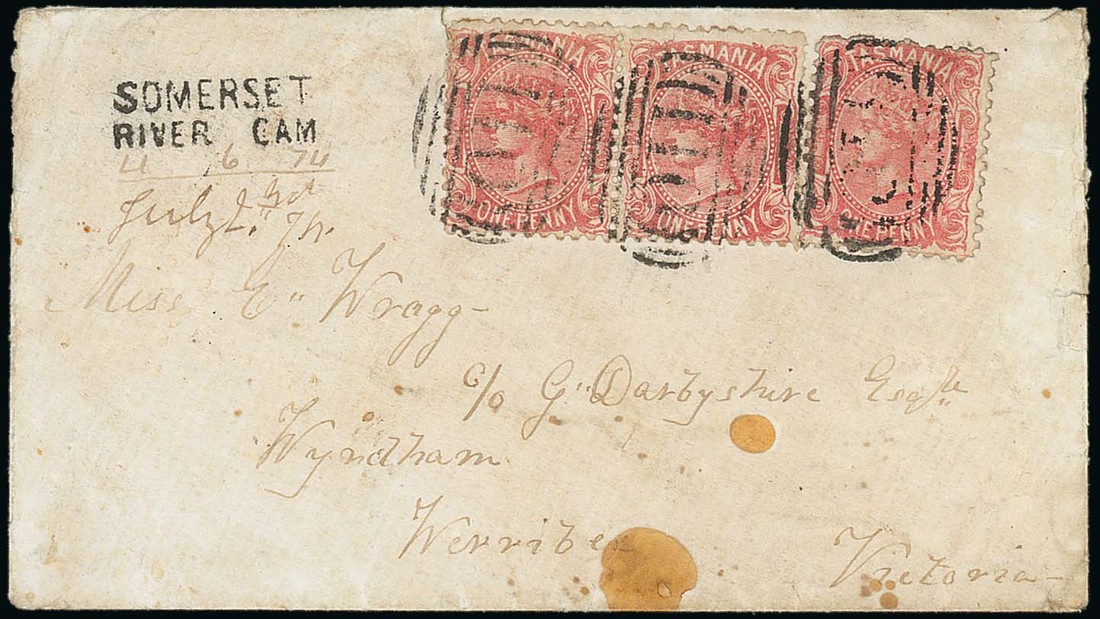 TASMANIA TASMANIA TASMANIA
ONE PENNY ONE PENNY ONE PENNY
SOMERSET
RIVER CAM
4 6 74
July
Miss E" Wragg-
c/o G" Darbyshire Esq
Wyndham
Werribee
Victoria-